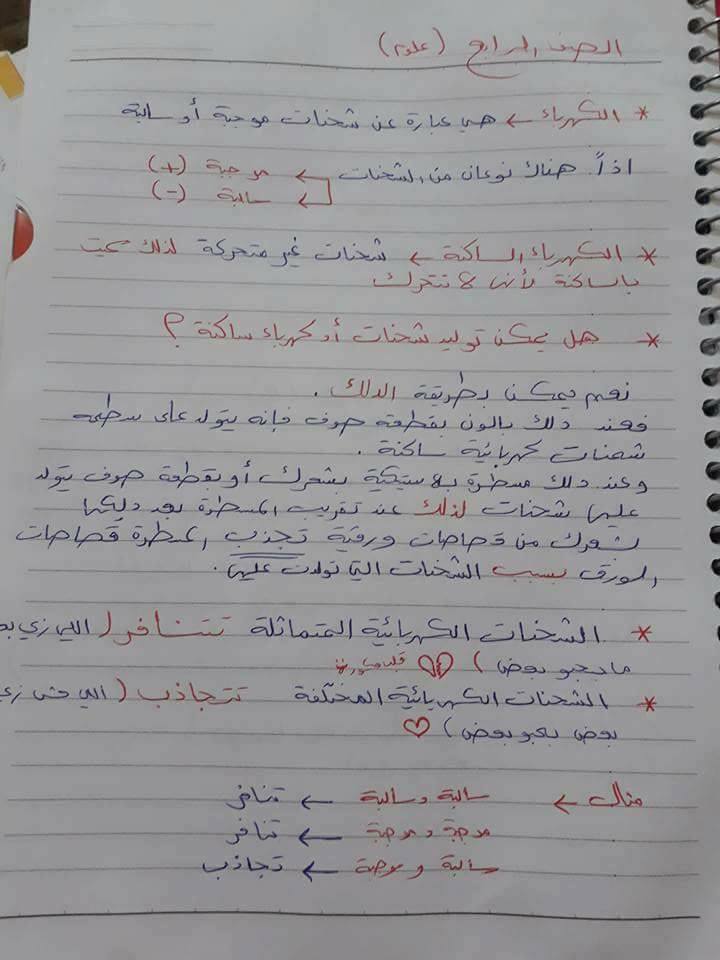 الصف الرابع (علوم)
* الكهرباء ← هي عبارة عن شحنات موجبة أو سالبة
اذاً هناك نوعان من الشحنات ← موجبة (+)
← سالبة (-)
* الكهرباء الساكنة ← شحنات غير متحركة لذلك سميت
بالساكنة لأنها لا تتحرك
* هل يمكن توليد شحنات أو كهرباء ساكنة ؟
نعم يمكن بطريقة الدلك .
فعند دلك بالون بقطعة صوف فإنه يتولد على سطحه
شحنات كهربائية ساكنة .
وعند دلك مسطرة بلاستيكية بشعرك أو بقطعة صوف يتولد
عليها شحنات لذلك عند تقريب المسطرة بعد دلكها
بشعرك من قصاصات ورقية تجذب المسطرة قصاصات
الورق بسبب الشحنات التي تولدت عليها .
* الشحنات الكهربائية المتماثلة تتنافر (اللي زي
ما بحبو بعض) 💔 قلب مكسور
* الشحنات الكهربائية المختلفة تتجاذب (اللي مش زي
بعض بحبو بعض) ♡
مثال ← سالبة وسالبة ← تنافر
موجبة وموجبة ← تنافر
سالبة وموجبة ← تجاذب